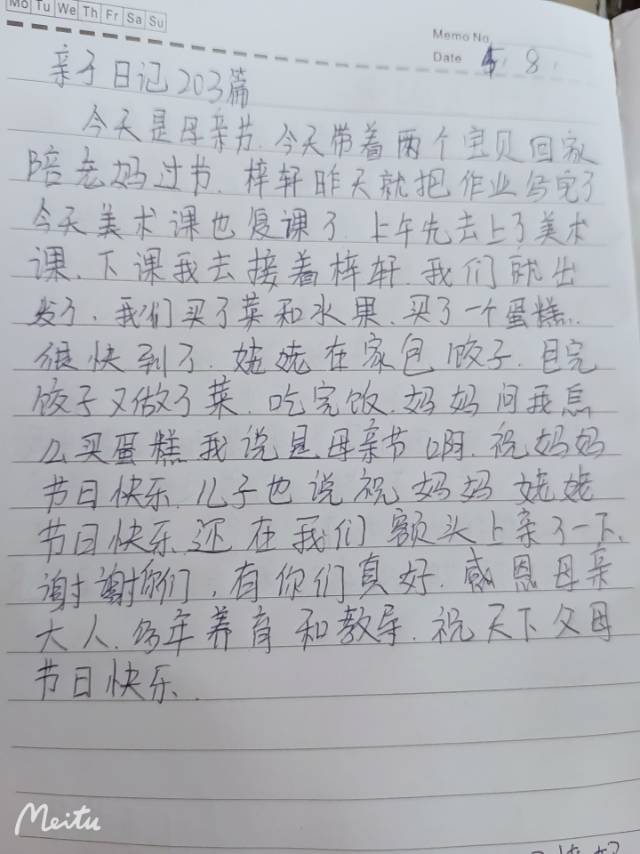 Mo Tu We Th Fr Sa Su
Memo No.
Date 5. 8.
亲子日记203篇
今天是母亲节.今天带着两个宝贝回家
陪老妈过节.梓轩昨天就把作业写完了
今天美术课也复课了.上午先去上了美术
课.下课我去接着梓轩.我们就出
发了.我们买了菜和水果.买了一个蛋糕.
很快到了.姥姥在家包饺子.包完
饺子又做了菜.吃完饭.妈妈问我怎
么买蛋糕我说是母亲节啊.祝妈妈
节日快乐.儿子也说祝妈妈姥姥
节日快乐还在我们额头上亲了一下.
谢谢你们,有你们真好.感恩母亲
大人.多年养育和教导.祝天下父母
节日快乐.
Meitu